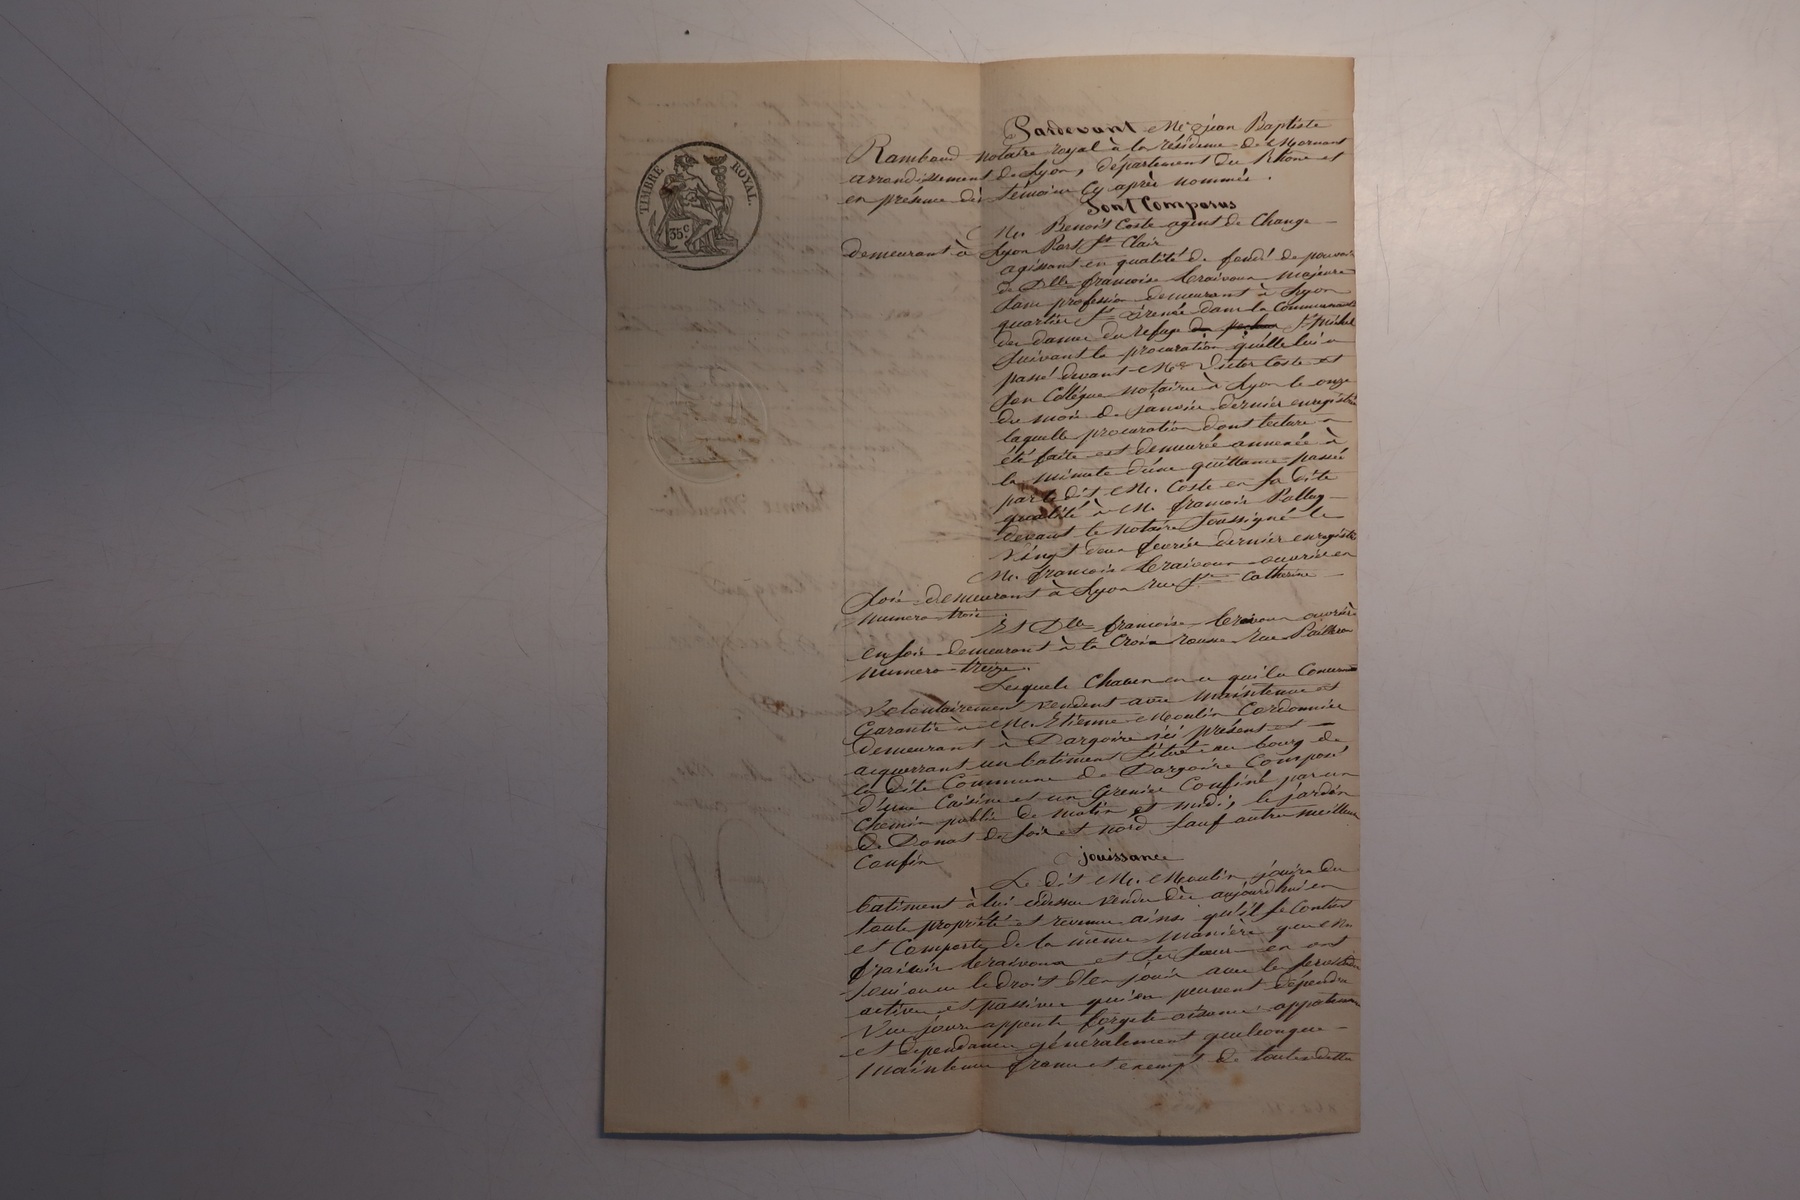 TIMBRE ROYAL.
35c
Pardevant Me jean Baptiste
Rambaud notaire royal à la résidence de Mornant
arrondissement de Lyon, département du Rhône et
en présence des témoins cy après nommés.
Sont Comparus
Mr. Benoit Coste agent de Change
demeurant à Lyon Port St Clair
agissant en qualité de fondé de pouvoir
de Dlle françoise majeure
sans profession demeurant à Lyon
quartier St irenée dans la Communauté
des dames du refuge St Michel
suivant la procuration qu'elle lui a
passé devant Me Victor Coste et
son Collègue notaires à Lyon le onze
du mois de janvier dernier enregistré
laquelle procuration dont lecture a
été faite est demeurée annexée à
la minute d'une quittance passée
par le dit Mr. Coste en sa dite
qualité à Mr françois
devant le notaire soussigné le
vingt deux fevrier dernier enregistré
Mr. françois ouvrier en
soie demeurant à Lyon rue Ste Catherine
numero trois
Et Dlle françoise ouvrière
en soie demeurant à la Croix rousse rue
numero treize.
Lesquels Chacun en ce qui le Concerne
volontairement vendent avec maintenue et
Garantie à Mr. Étienne Moulin Cordonnier
demeurant à Dargoire ici présent et
acquerrant un batiment situé au bourg de
la dite Commune de Dargoire Composé
d'une Cuisine et un Grenier Confiné par un
chemin public de matin et midi, le jardin
de Donat de soir et nord sauf autres meilleurs
Confins
jouissance
Le dit Mr. Moulin jouira du
batiment à lui cidessus vendu dès aujourdhui en
toute propriété et revenus ainsi qu'il se Contient
et Comporte de la même manière que Mr
et ses sœurs en ont
joui ou eu le droit d'en jouir avec les servitudes
actives et passives qui en peuvent dépendre
Vue jours appents aisances appartenances
et dépendances généralement quelconques
maintenu franc et exempt de toutes dettes